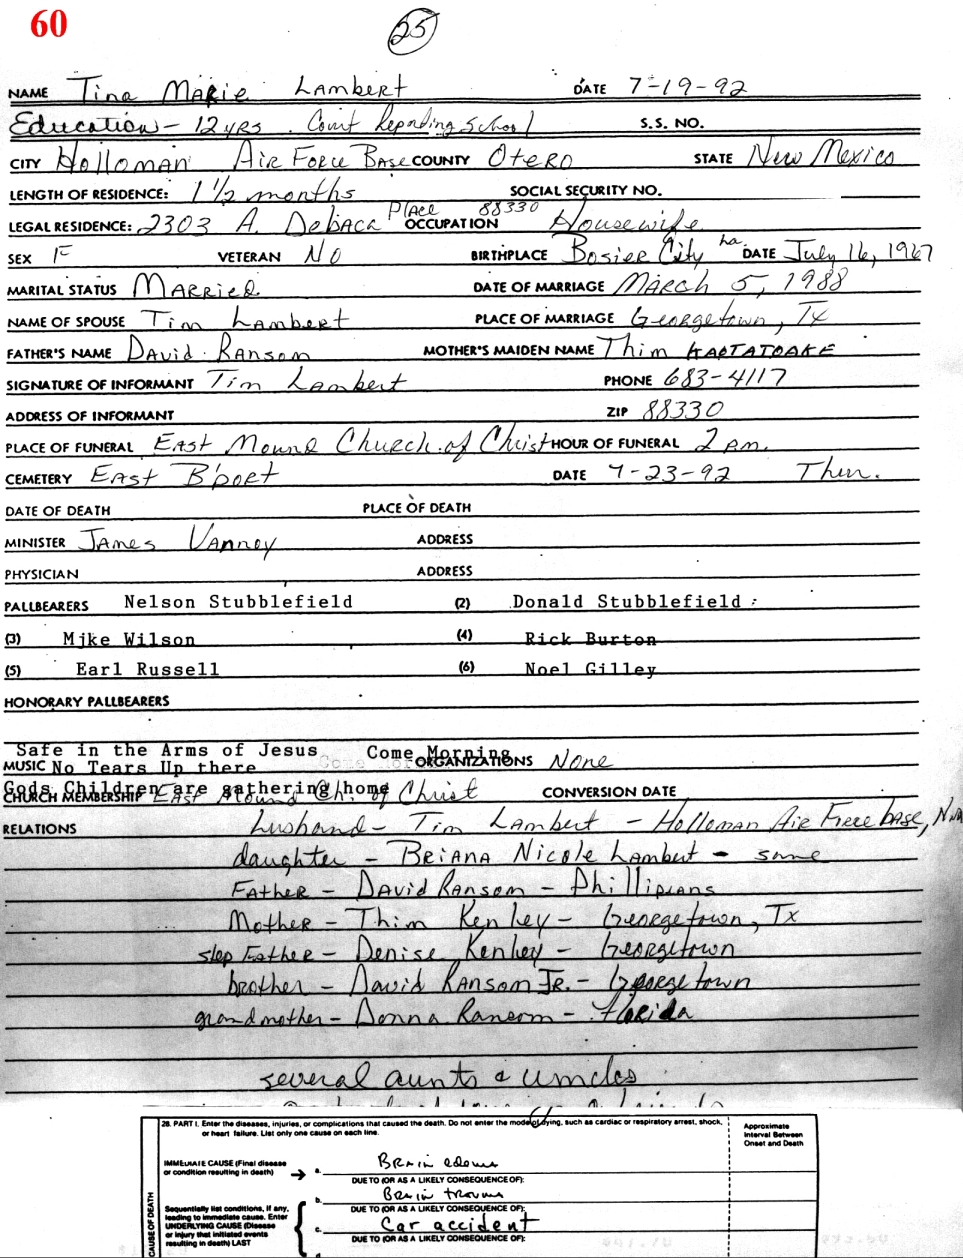 60
25
NAME Tina Marie Lambert DATE 7-19-92
Education - 12 yrs. Court Reporting School S.S. NO.
CITY Holloman Air Force Base COUNTY Otero STATE New Mexico
LENGTH OF RESIDENCE: 1 1/2 months SOCIAL SECURITY NO.
LEGAL RESIDENCE: 2303 A. DeBaca Place 88330 OCCUPATION Housewife
SEX F VETERAN No BIRTHPLACE Bosier City La. DATE July 16, 1967
MARITAL STATUS Married DATE OF MARRIAGE March 5, 1988
NAME OF SPOUSE Tim Lambert PLACE OF MARRIAGE Georgetown, Tx
FATHER'S NAME David Ransom MOTHER'S MAIDEN NAME Thim KAOTATOAKE
SIGNATURE OF INFORMANT Tim Lambert PHONE 683-4117
ADDRESS OF INFORMANT ZIP 88330
PLACE OF FUNERAL East Mound Church of Christ HOUR OF FUNERAL 2 pm.
CEMETERY East B'port DATE 7-23-92 Thur.
DATE OF DEATH PLACE OF DEATH
MINISTER James Vannoy ADDRESS
PHYSICIAN ADDRESS
PALLBEARERS Nelson Stubblefield (2) Donald Stubblefield
(3) Mjke Wilson (4) Rick Burton
(5) Earl Russell (6) Noel Gilley
HONORARY PALLBEARERS
Safe in the Arms of Jesus Come Morning
MUSIC No Tears Up there ORGANIZATIONS None
Gods Children are gathering home
CHURCH MEMBERSHIP East Mound Ch. of Christ CONVERSION DATE
RELATIONS husband - Tim Lambert - Holloman Air Force base, N.M
daughter - Briana Nicole Lambert - same
Father - David Ransom - Phillipians
Mother - Thim Kenley - Georgetown, Tx
step Father - Denise Kenley - Georgetown
brother - David Ransom Jr. - Georgetown
grandmother - Donna Ransom - Florida
several aunts & uncles
28. PART I. Enter the diseases, injuries, or complications that caused the death. Do not enter the mode of dying, such as cardiac or respiratory arrest, shock, or heart failure. List only one cause on each line.
Approximate Interval Between Onset and Death
IMMEDIATE CAUSE (Final disease or condition resulting in death) a. Brain edema
DUE TO (OR AS A LIKELY CONSEQUENCE OF):
b. Brain trauma
DUE TO (OR AS A LIKELY CONSEQUENCE OF):
Sequentially list conditions, if any, leading to immediate cause. Enter UNDERLYING CAUSE (Disease or injury that initiated events resulting in death) LAST
c. Car accident
DUE TO (OR AS A LIKELY CONSEQUENCE OF):
CAUSE OF DEATH